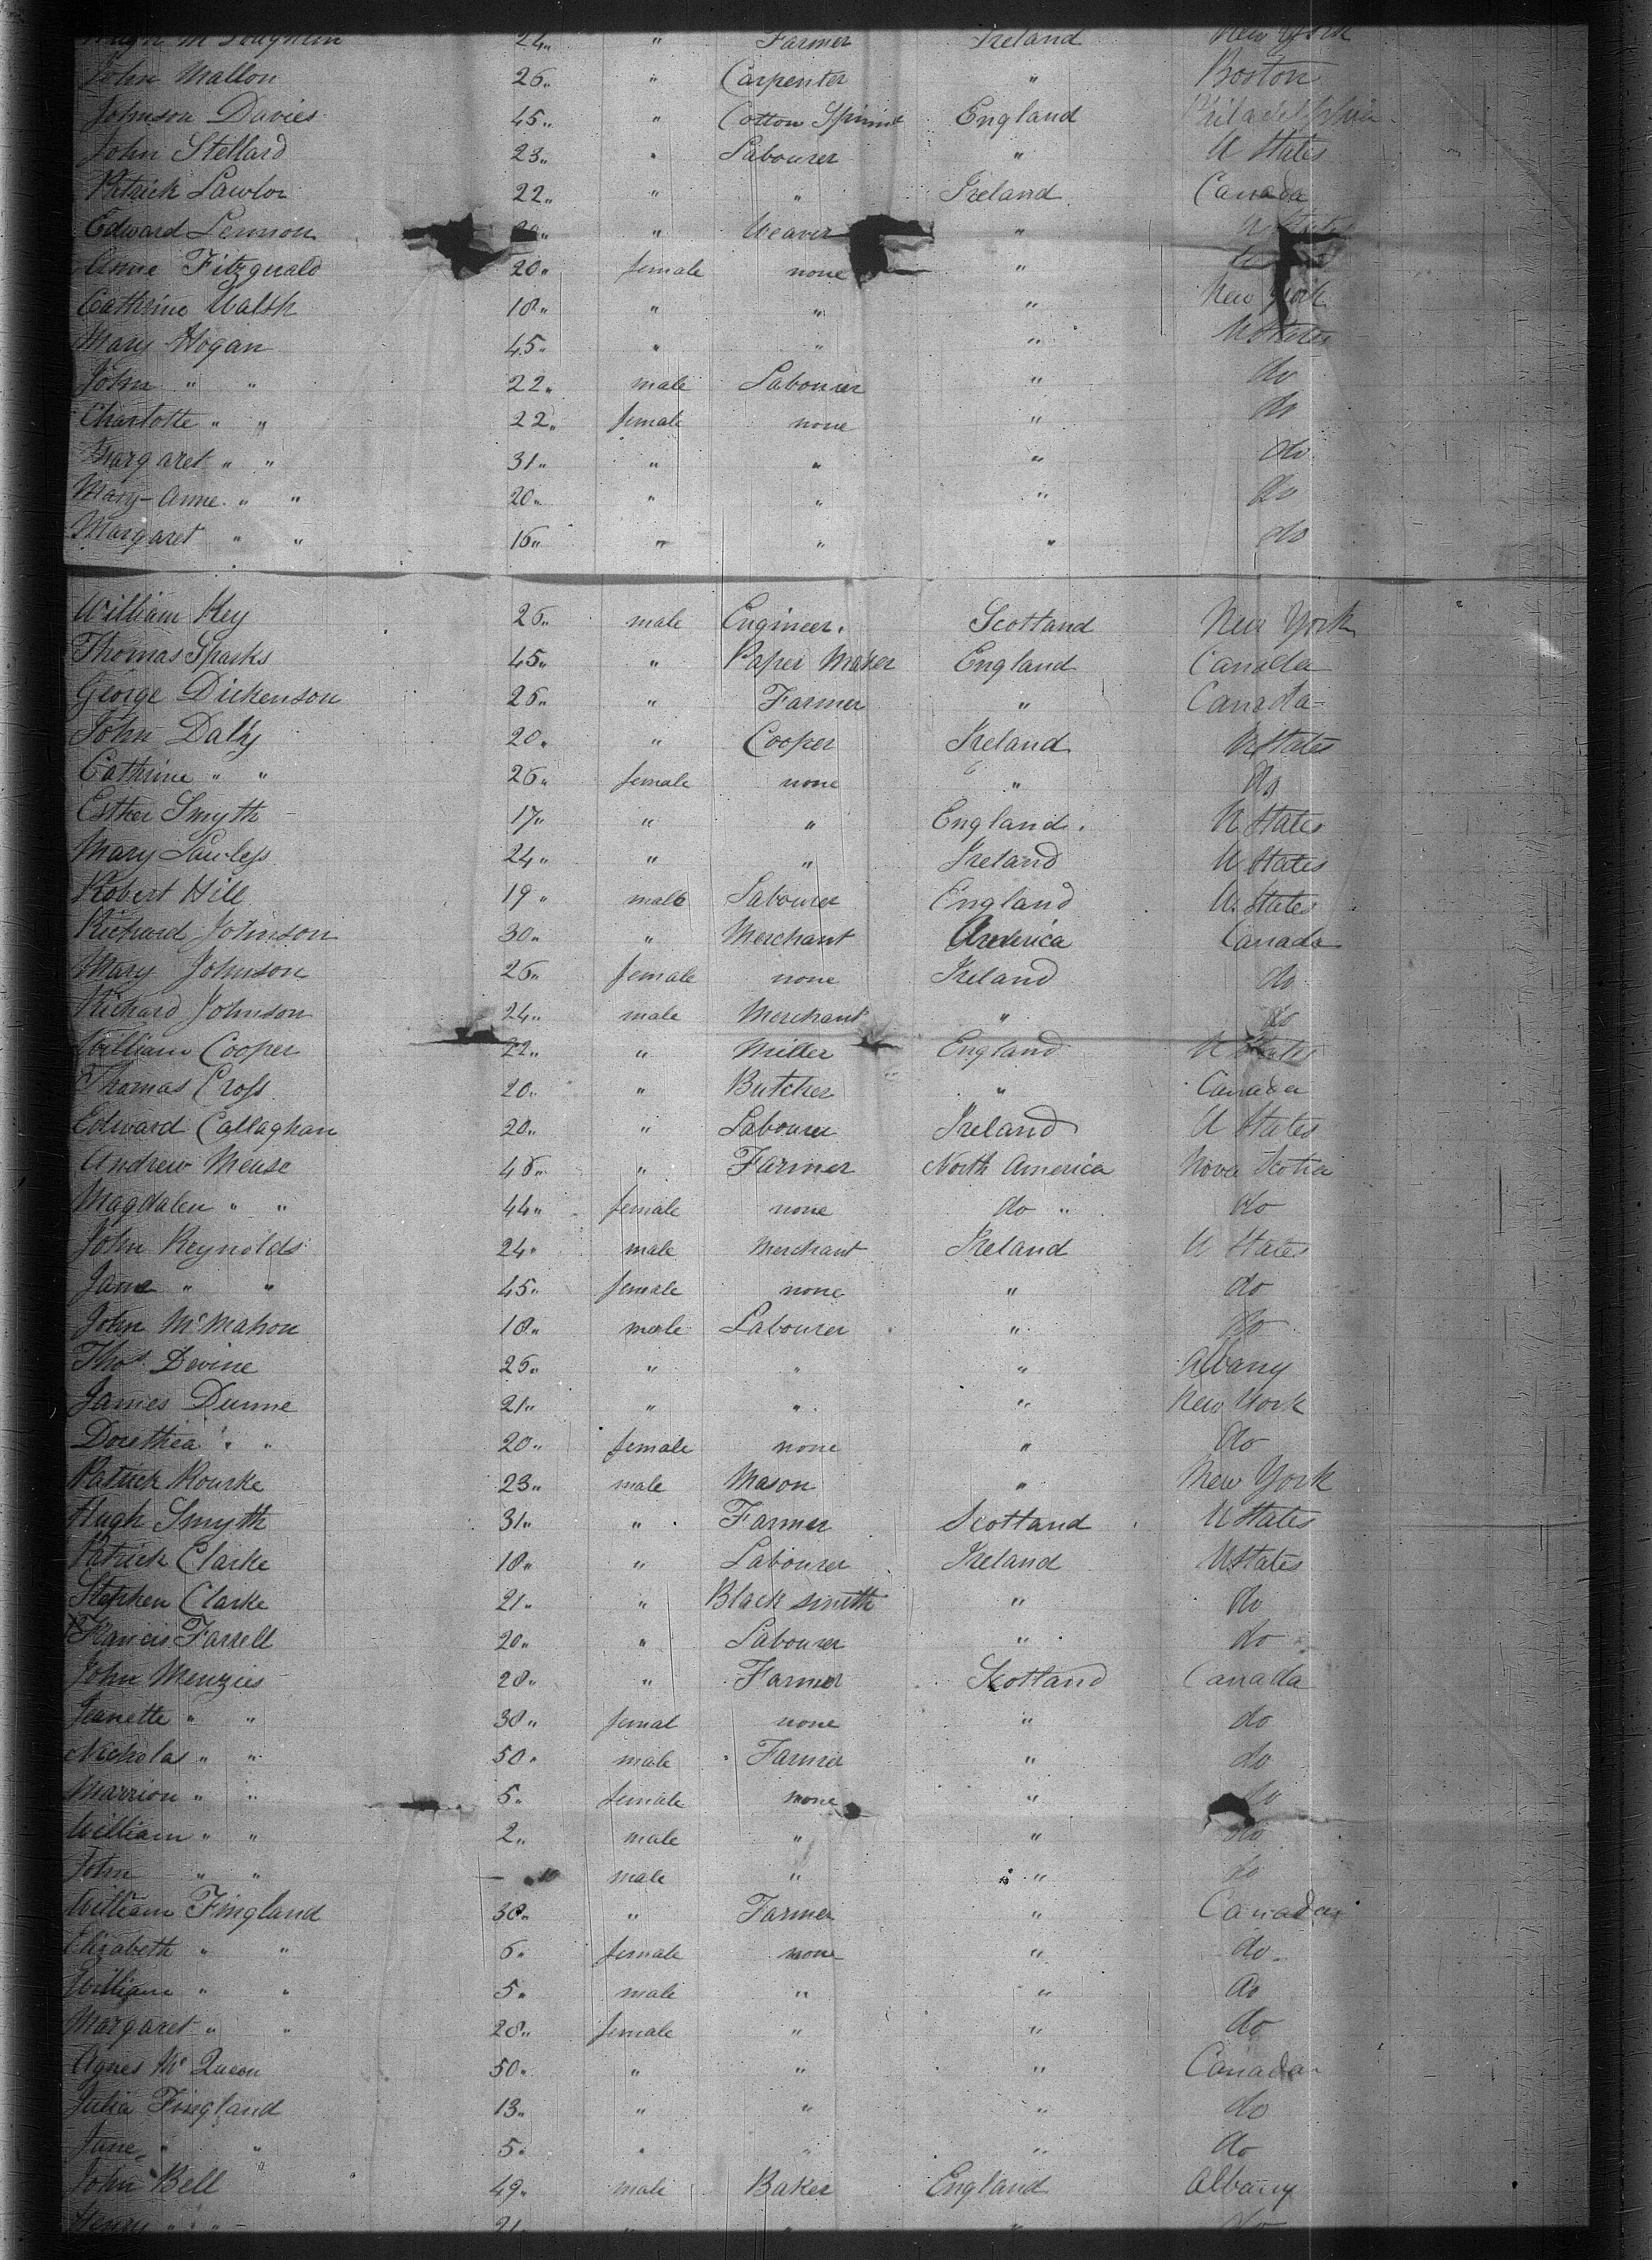 Hugh McLoughlin 24 " Farmer Ireland New York
John Mallon 26 " Carpenter " Boston
Johnson Davies 45 " Cotton Spinner England Philadelphia
John Stellard 23 " Labourer " U States
Patrick Lawlor 22 " " Ireland Canada
Edward Lennon " Weaver " U States
Anne Fitzgerald 20 female none "
Cathrine Walsh 18 " " " New York
Mary Hogan 45 " " " U States
John " " 22 male Labourer " do
Charlotte " " 22 female none " do
Margaret " " 31 " " " do
Mary-Anne " " 20 " " " do
Margaret " " 16 " " " do
William Key 26 male Engineer. Scotland New York
Thomas Sparks 45 " Paper Maker England Canada
George Dickenson 26 " Farmer " Canada
John Daly 20 " Cooper Ireland U States
Cathrine " " 26 female none " do
Esther Smyth 17 " " England. U States
Mary Lawless 24 " " Ireland U States
Robert Hill 19 male Labourer England U. States
Richard Johnson 30 " Merchant America Canada
Mary Johnson 26 female none Ireland do
Richard Johnson 24 male Merchant " do
William Cooper 22 " Miller England U States
Thomas Cross 20 " Butcher " Canada
Edward Callaghan 20 " Labourer Ireland U States
Andrew Meuse 46 " Farmer North America Nova Scotia
Magdalen " " 44 female none do " do
John Reynolds 24 male Merchant Ireland U States
Jane " " 45 female none " do
John McMahon 18 male Labourer " do
Thos Devine 26 " " " Albany
James Dunne 21 " " " New York
Dorethea " " 20 female none " do
Patrick Rourke 23 male Mason " New York
Hugh Smyth 31 " Farmer Scotland U States
Patrick Clarke 18 " Labourer Ireland U States
Stephen Clarke 21 " Black smith " do
Francis Farrell 20 " Labourer " do
John Menzies 28 " Farmer Scotland Canada
Jeanette " " 38 femal none " do
Nicholas " " 50 male Farmer " do
Marrion " " 5 female none " do
William " " 2 male " " do
John " " male " " do
William Fingland 30 " Farmer " Canada
Elizabeth " " 6 female none " do
William " " 5 male " " do
Margaret " " 28 female " " do
Agnes McQueen 50 " " " Canada
Julia Fingland 13 " " " do
June " " 5 " " " do
John Bell 49 male Baker England Albany
Henry " " 21 " " " do